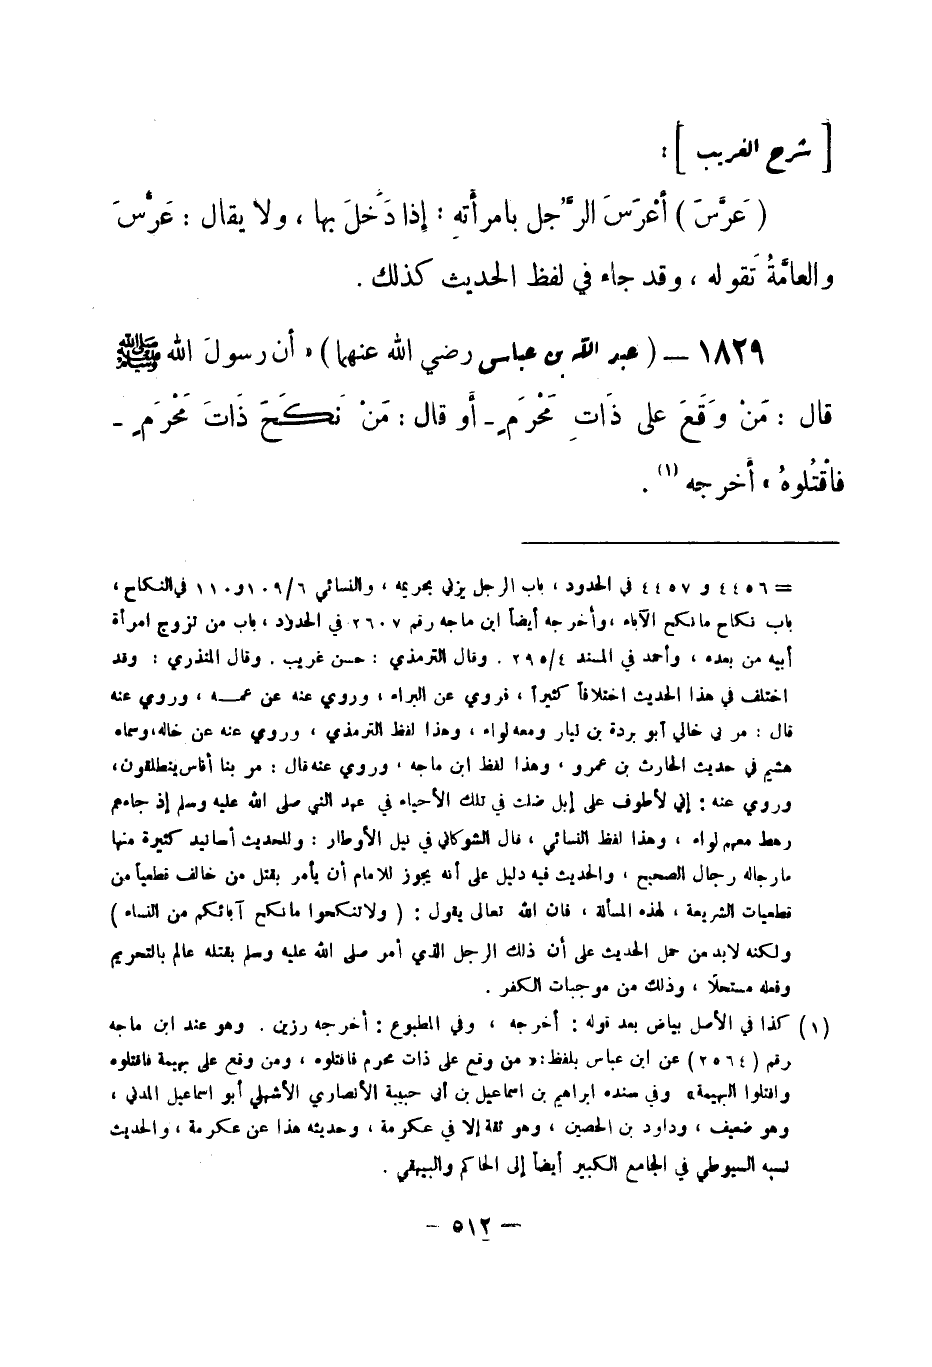 [ شرح الغريب ] :
( عَرَّسَ ) أعْرَسَ الرَّجل بامرأتهِ : إذا دَخَلَ بها ، ولا يقال : عَرَّسَ
والعامَّةُ تَقوله ، وقد جاء في لفظ الحديث كذلك .
١٨٢٩ – ( عبد الله بن عباس رضي الله عنهما ) « أن رسولَ الله ﷺ
قال : مَنْ وَقَعَ على ذَاتِ مَحْرَمٍ - أو قال : مَنْ نَكَحَ ذَاتَ مَحْرَمٍ -
فاقْتُلوهُ » أخرجه (١) .
= ٤٤٥٦ و ٤٤٥٧ في الحدود ، باب الرجل يزني بحريمه ، والنسائي ١٠٩/٦ و ١١٠ في النكاح ،
باب نكاح ما نكح الآباء ، وأخرجه أيضاً ابن ماجه رقم ٢٦٠٧ في الحدود ، باب من تزوج امرأة
أبيه من بعده ، وأحمد في المسند ٢٩٥/٤ . وقال الترمذي : حسن غريب . وقال المنذري : وقد
اختلف في هذا الحديث اختلافاً كثيراً ، فروي عن البراء ، وروي عنه عن عمه ، وروي عنه
قال : مر بي خالي أبو بردة بن نيار ومعه لواء ، وهذا لفظ الترمذي ، وروي عنه عن خاله، وسماه
هشيم في حديث الحارث بن عمرو ، وهذا لفظ ابن ماجه ، وروي عنه قال : مر بنا أناس ينطلقون،
وروي عنه : إني لأطوف على إبل ضلت في تلك الأحياء في عهد النبي صلى الله عليه وسلم إذ جاءهم
رهط معهم لواء ، وهذا لفظ النسائي ، قال الشوكاني في نيل الأوطار : وللحديث أسانيد كثيرة منها
ما رجاله رجال الصحيح ، والحديث فيه دليل على أنه يجوز للامام أن يأمر بقتل من خالف قطعياً من
قطعيات الشريعة ، لهذه المسألة ، فان الله تعالى يقول : ( ولا تنكحوا ما نكح آبائكم من النساء )
ولكنه لابد من حمل الحديث على أن ذلك الرجل الذي أمر صلى الله عليه وسلم بقتله عالم بالتحريم
وفعله مستحلاً ، وذلك من موجبات الكفر .
(١) كذا في الأصل بياض بعد قوله : أخرجه ، وفي المطبوع : أخرجه رزين . وهو عند ابن ماجه
رقم ( ٢٥٦٤ ) عن ابن عباس بلفظ: « من وقع على ذات محرم فاقتلوه ، ومن وقع على بهيمة فاقتلوه
واقتلوا البهيمة» وفي سنده ابراهيم بن اسماعيل بن أبي حبيبة الأنصاري الأشهلي أبو اسماعيل المدني ،
وهو ضعيف ، وداود بن الحصين ، وهو ثقة إلا في عكرمة ، وحديثه هذا عن عكرمة ، والحديث
نسبه السيوطي في الجامع الكبير أيضاً إلى الحاكم والبيهقي .
– ٥١٢ –